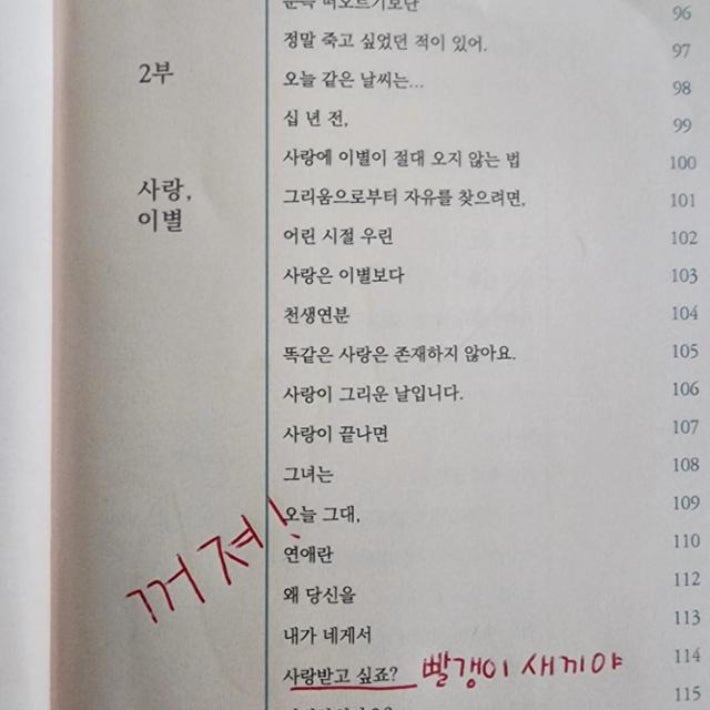 96
정말 죽고 싶었던 적이 있어. 97
2부
오늘 같은 날씨는... 98
십 년 전, 99
사랑에 이별이 절대 오지 않는 법 100
사랑,
이별
그리움으로부터 자유를 찾으려면, 101
어린 시절 우린 102
사랑은 이별보다 103
천생연분 104
똑같은 사랑은 존재하지 않아요. 105
사랑이 그리운 날입니다. 106
사랑이 끝나면 107
그녀는 108
꺼져!
오늘 그대, 109
연애란 110
왜 당신을 112
내가 네게서 113
사랑받고 싶죠? 빨갱이 새끼야 114
115